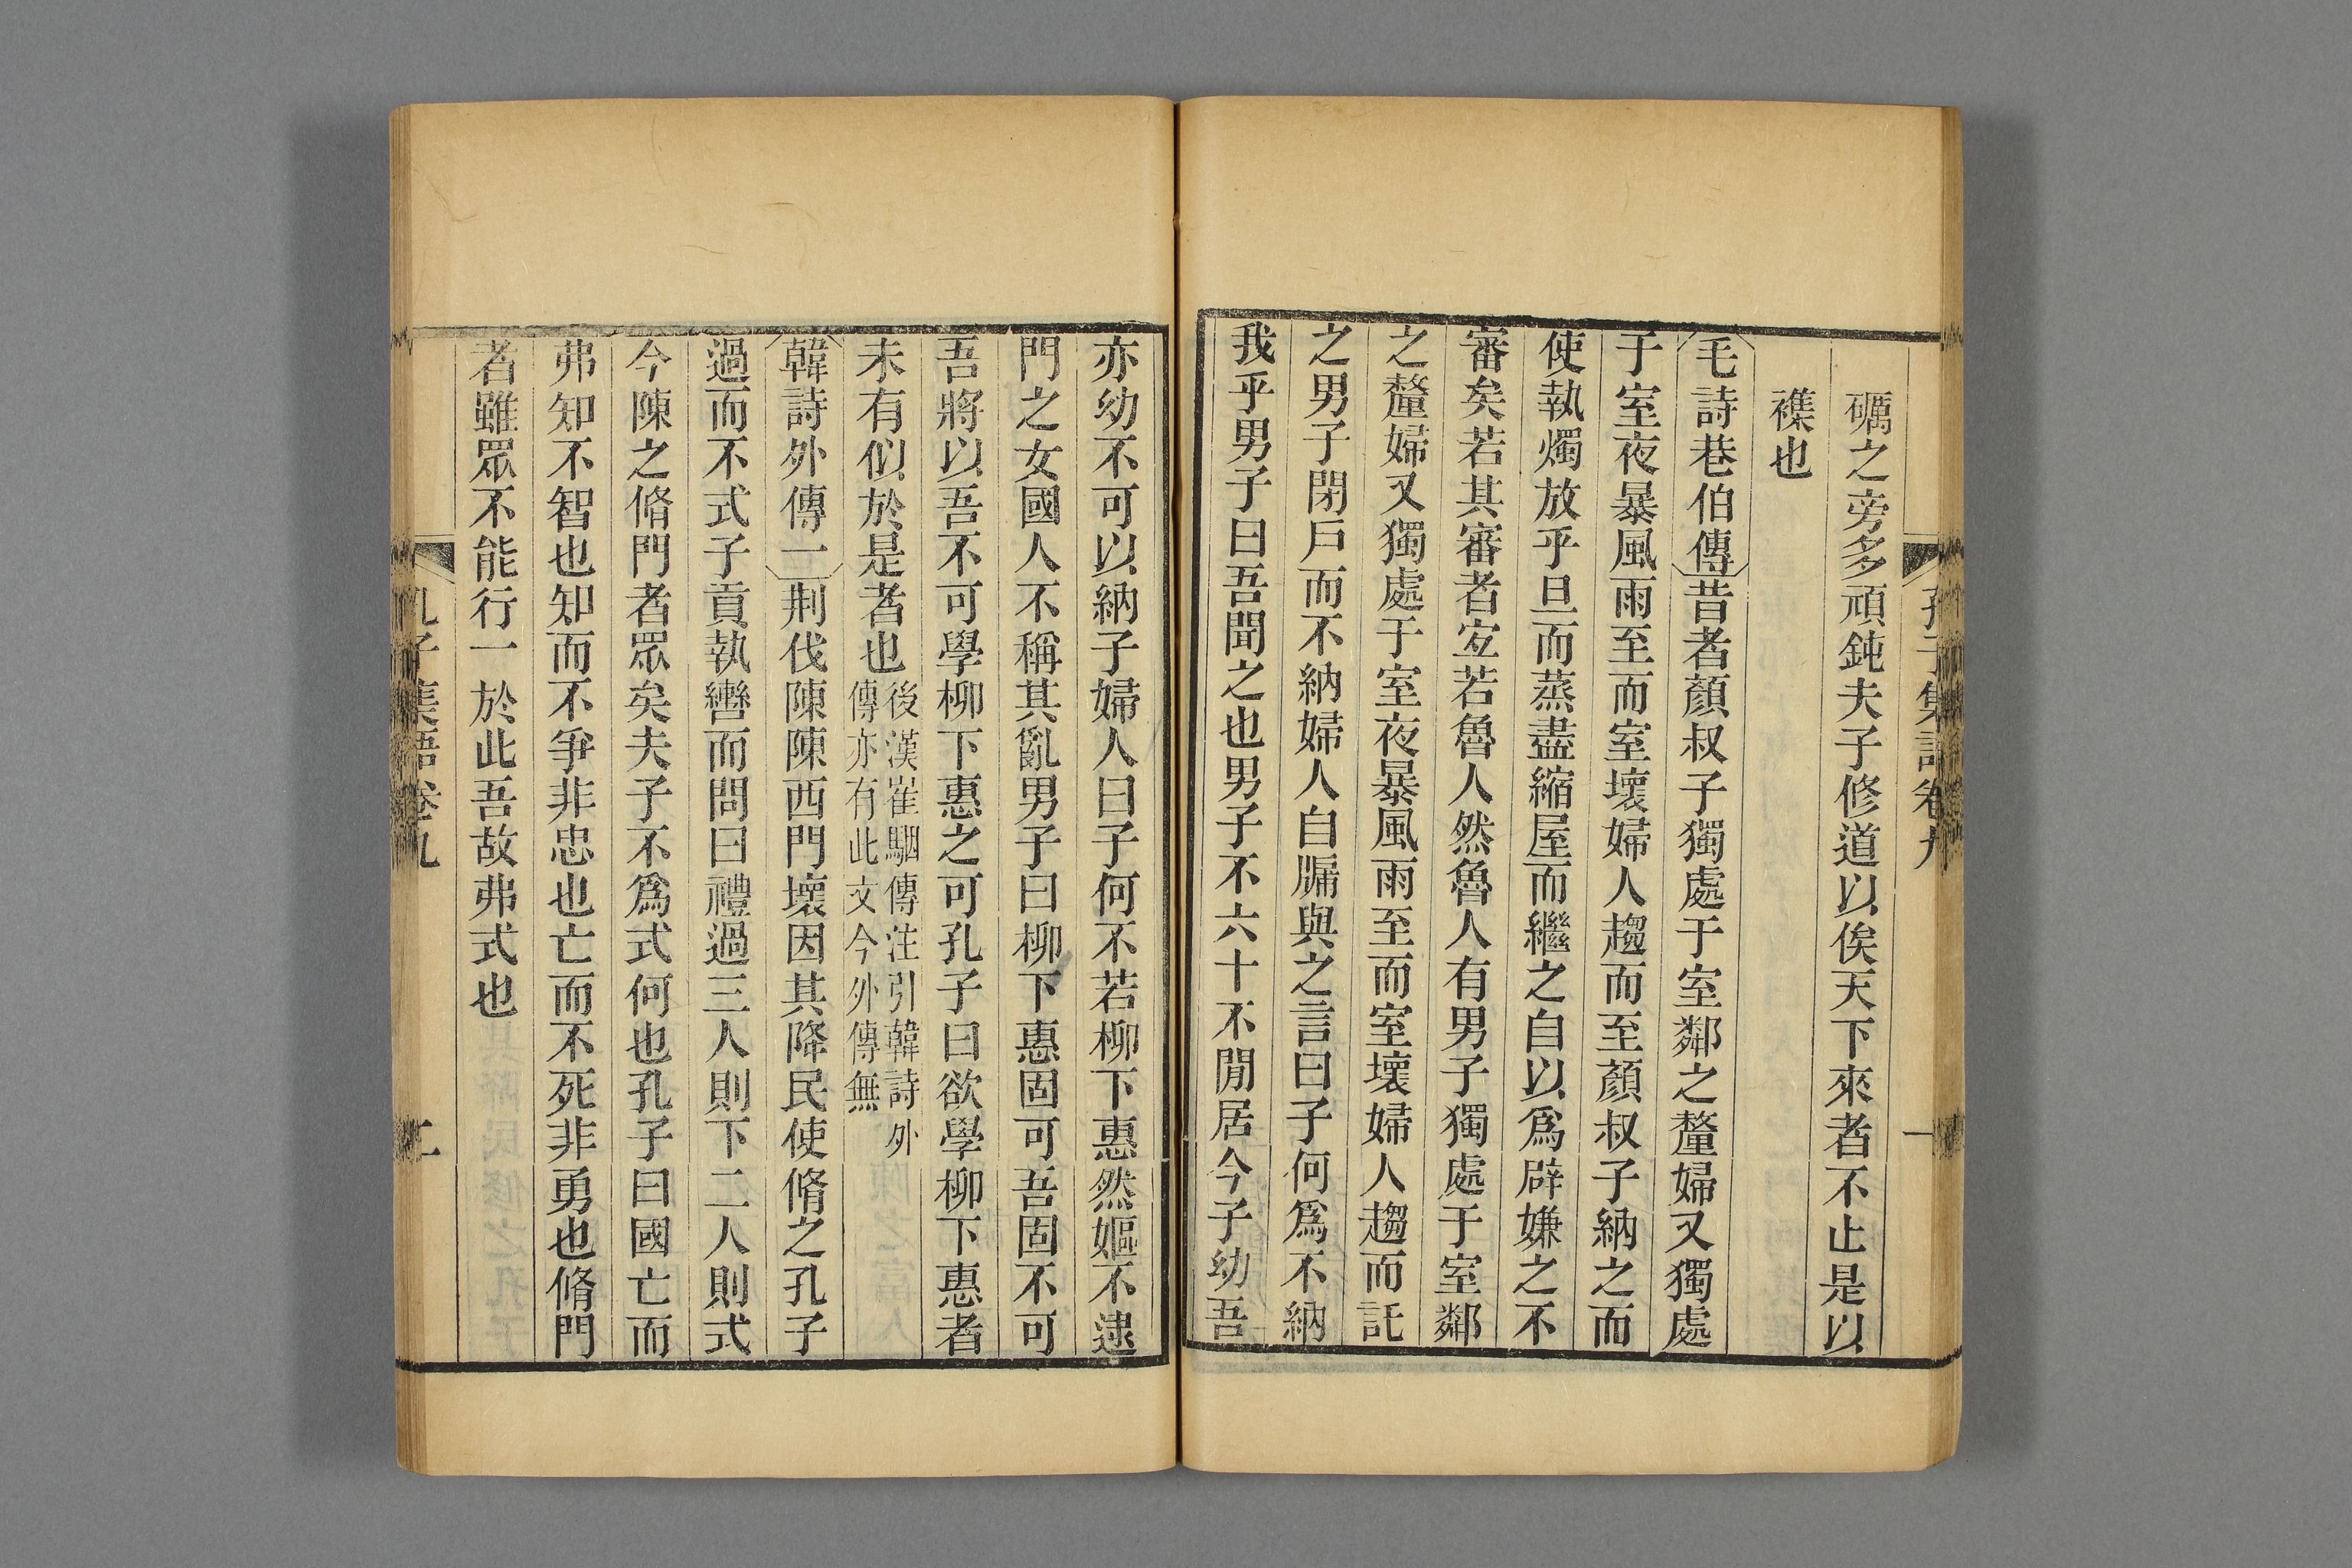 孔子集語卷九
一
礪之旁多頑鈍夫子修道以俟天下來者不止是以
襍也
毛詩巷伯傳昔者顏叔子獨處于室鄰之釐婦又獨處
于室夜暴風雨至而室壞婦人趨而至顏叔子納之而
使執燭放乎旦而蒸盡縮屋而繼之自以爲辟嫌之不
審矣若其審者宐若魯人然魯人有男子獨處于室鄰
之釐婦又獨處于室夜暴風雨至而室壞婦人趨而託
之男子閉戶而不納婦人自牖與之言曰子何爲不納
我乎男子曰吾聞之也男子不六十不閒居今子幼吾
亦幼不可以納子婦人曰子何不若柳下惠然嫗不逮
門之女國人不稱其亂男子曰柳下惠固可吾固不可
吾將以吾不可學柳下惠之可孔子曰欲學柳下惠者
未有似於是者也後漢崔駰傳注引韓詩外
傳亦有此文今外傳無
韓詩外傳一荆伐陳陳西門壞因其降民使脩之孔子
過而不式子貢執轡而問曰禮過三人則下二人則式
今陳之脩門者眾矣夫子不爲式何也孔子曰國亡而
弗知不智也知而不爭非忠也亡而不死非勇也脩門
者雖眾不能行一於此吾故弗式也
孔子集語卷九
二